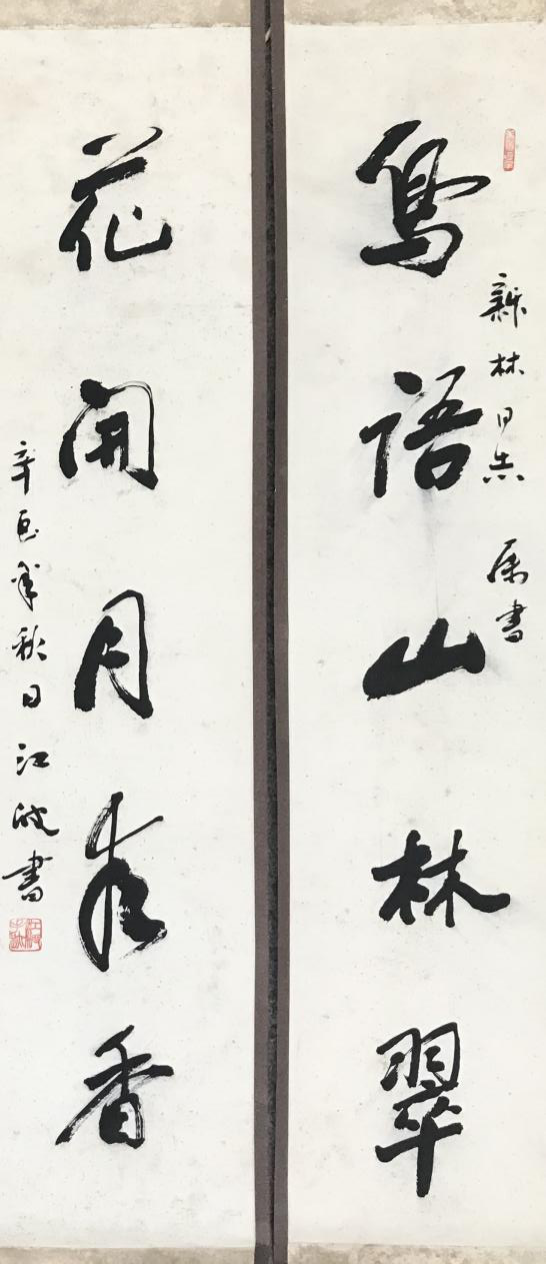 鳥語山林翠
新林同志 属書
花開月夜香
辛酉年秋日江波書